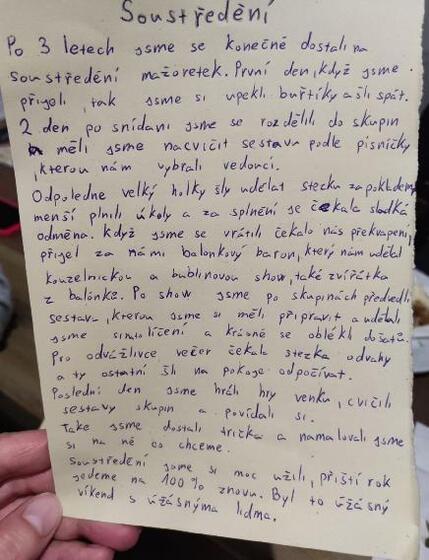 Soustředění
Po 3 letech jsme se konečně dostali na
soustředění mažoretek. První den, když jsme
přijeli, tak jsme si upekli buřtíky a šli spát.
2 den po snídani jsme se rozdělili do skupin
měli jsme nacvičit sestavu podle písničky
, kterou nám vybrali vedoucí.
Odpoledne velký holky šly udělat stecku za pokladem,
menší plnili úkoly a za splnění je čekala sladká
odměna. Když jsme se vrátili čekalo nás překvapení,
přijel za námi balonkový baron, který nám udělal
kouzelnickou a bublinovou show, také zvířátka
z balónků. Po show jsme po skupinách předvedli
sestavu, kterou jsme si měli připravit a udělali
jsme si líčení a krásně se oblékli do šatů.
Pro odvážlivce večer čekala stezka odvahy
a ty ostatní šli na pokoje odpočívat.
Poslední den jsme hráli hry venku, cvičili
sestavy skupin a povídali si.
Také jsme dostali trička a namalovali jsme
si na ně co chceme.
Soustředění jsme si moc užili, příští rok
jedeme na 100% znovu. Byl to úžásný
víkend s úžásnýma lidma.